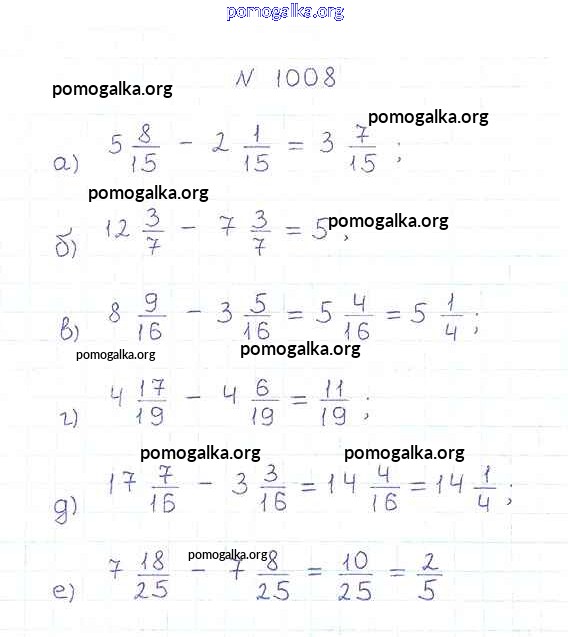 pomogalka.org
N 1008
pomogalka.org
pomogalka.org
а) 5 8/15 - 2 1/15 = 3 7/15 ;
pomogalka.org
pomogalka.org
б) 12 3/7 - 7 3/7 = 5 ;
в) 8 9/16 - 3 5/16 = 5 4/16 = 5 1/4 ;
pomogalka.org
pomogalka.org
г) 4 17/19 - 4 6/19 = 11/19 ;
pomogalka.org
pomogalka.org
д) 17 7/16 - 3 3/16 = 14 4/16 = 14 1/4 ;
pomogalka.org
е) 7 18/25 - 7 8/25 = 10/25 = 2/5